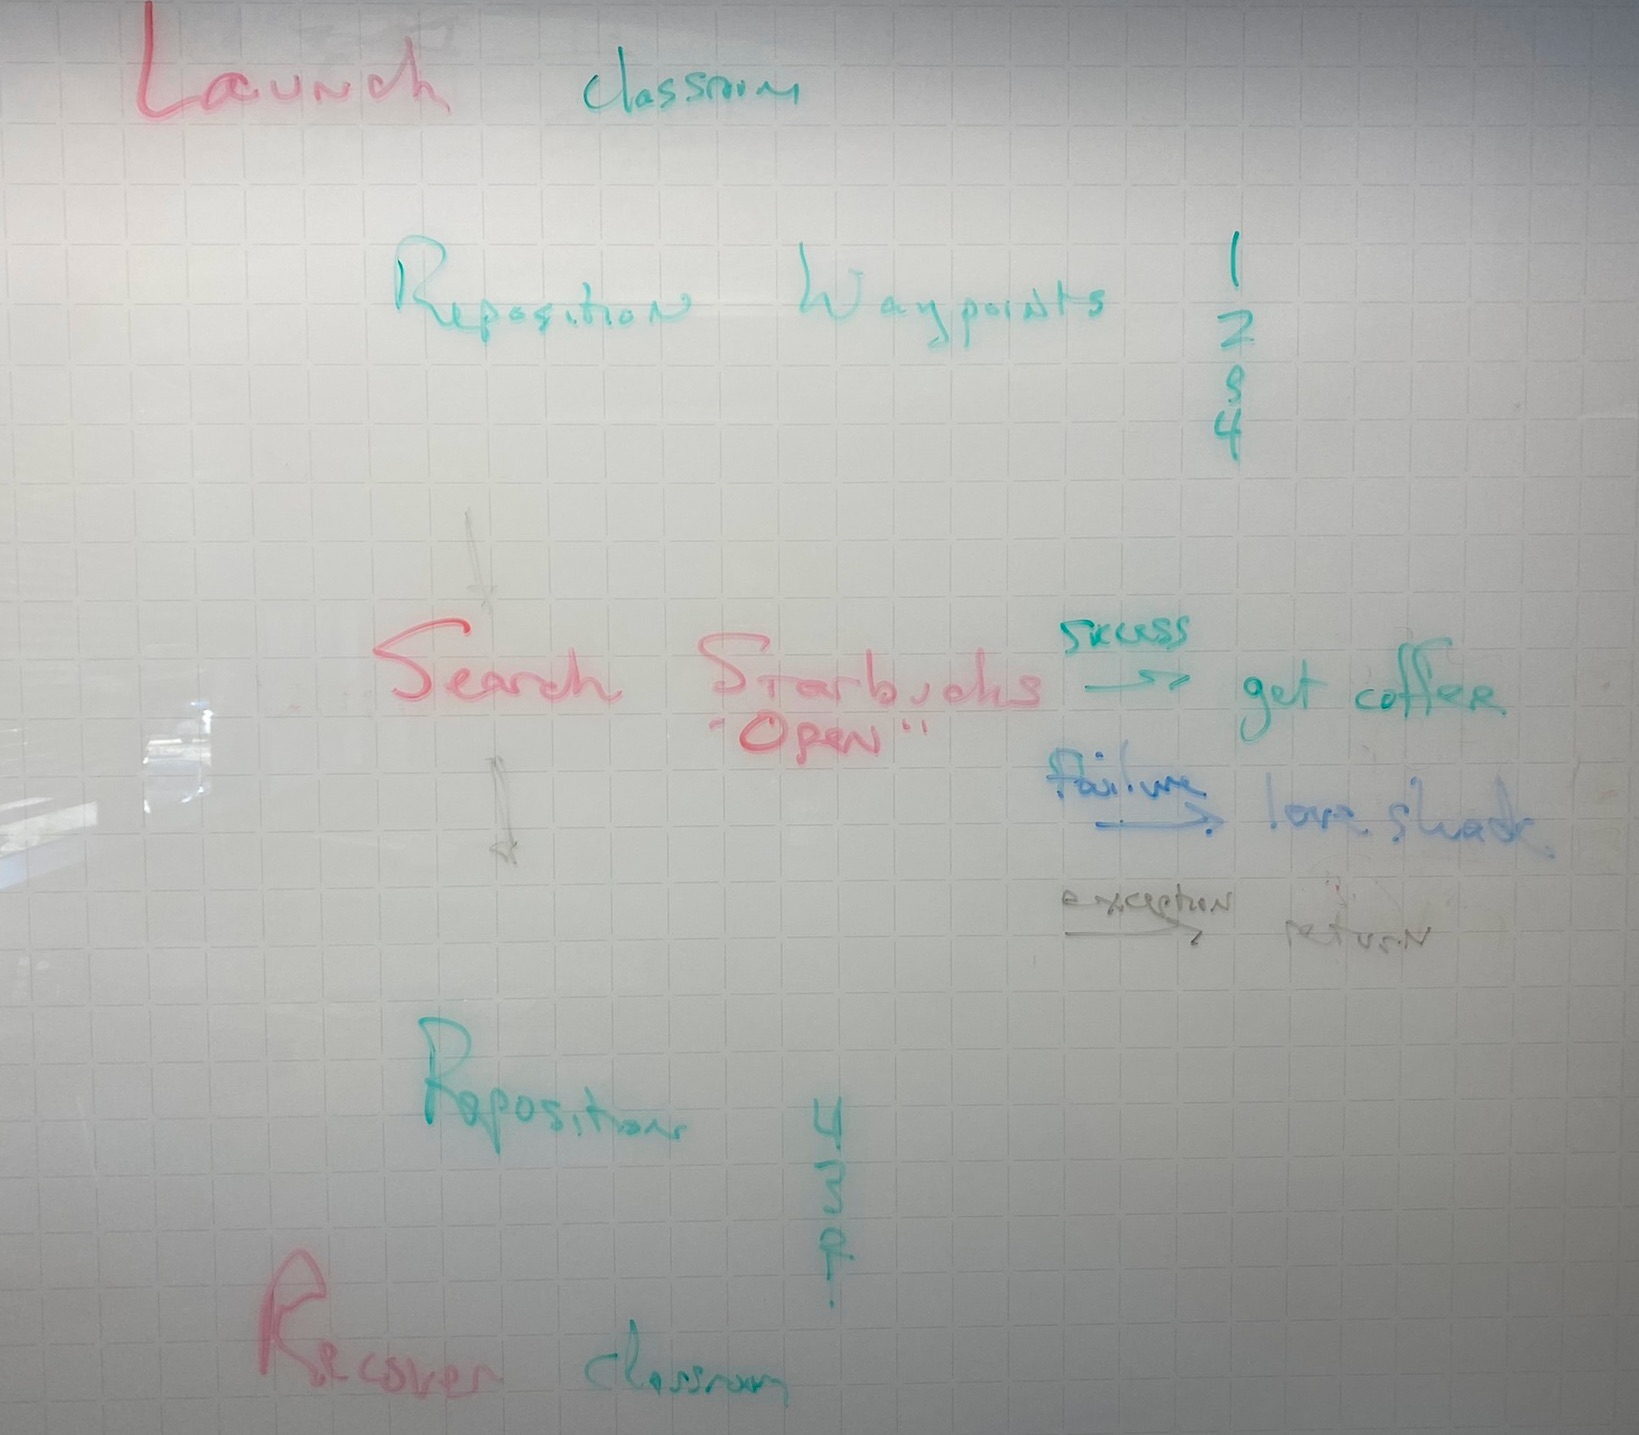 Launch classroom
Reposition Waypoints 1
2
3
4
success
Search Starbucks → get coffee
"Open"
failure
→ love shack
exception
→ return
Reposition 4
3
Recover classroom